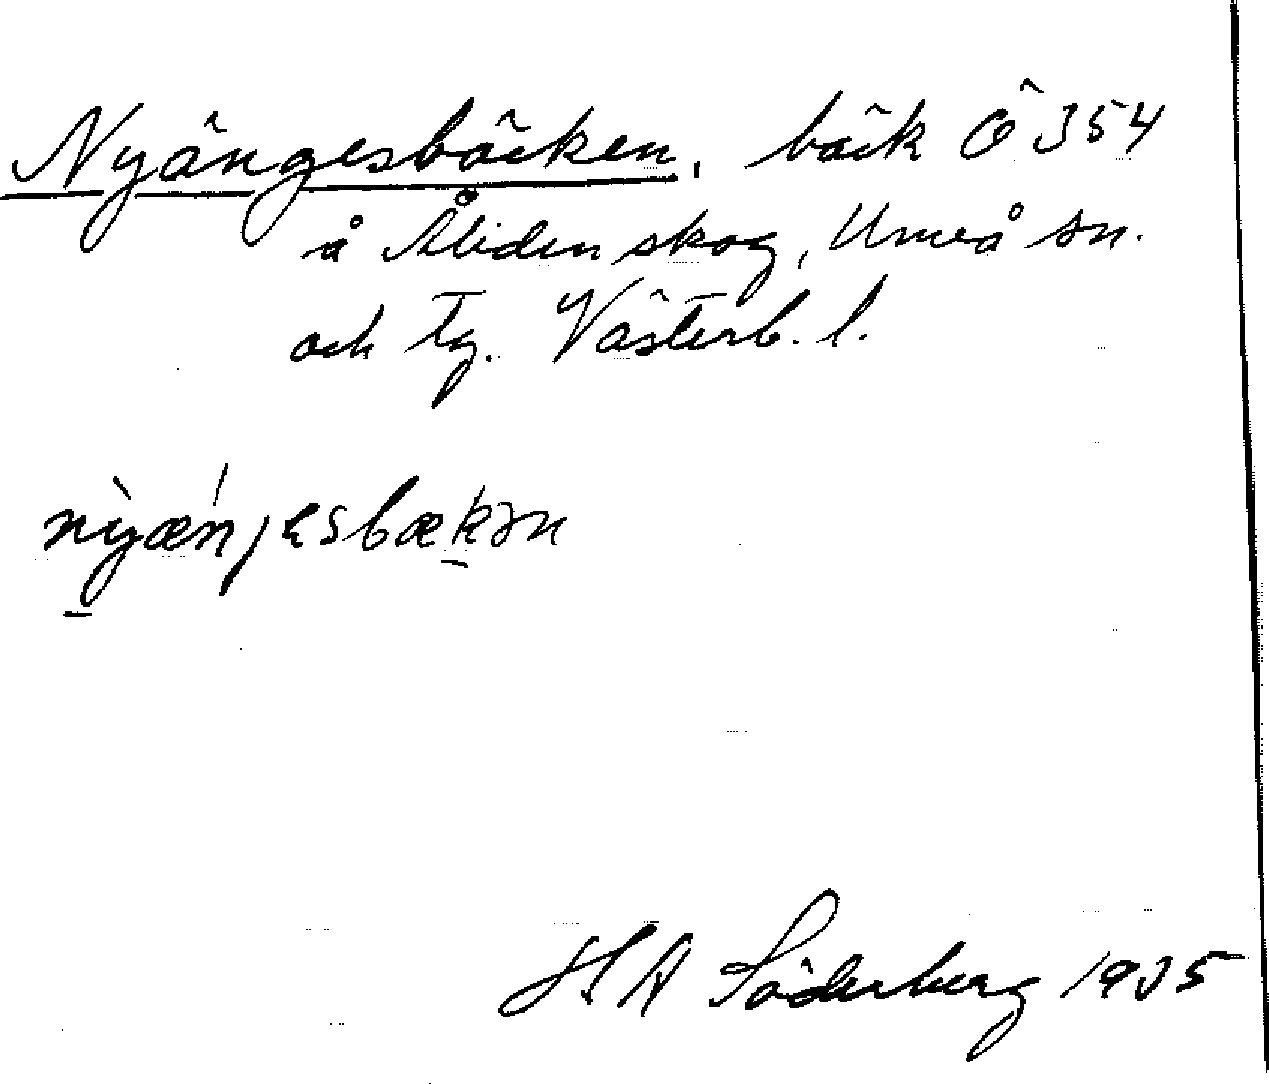 Nyängesbäcken, bäck Ö 354
å Åliden skog, Umeå sn.
och tg. Västerb. l.
nỳæńjesbækən
H A Söderberg 1935